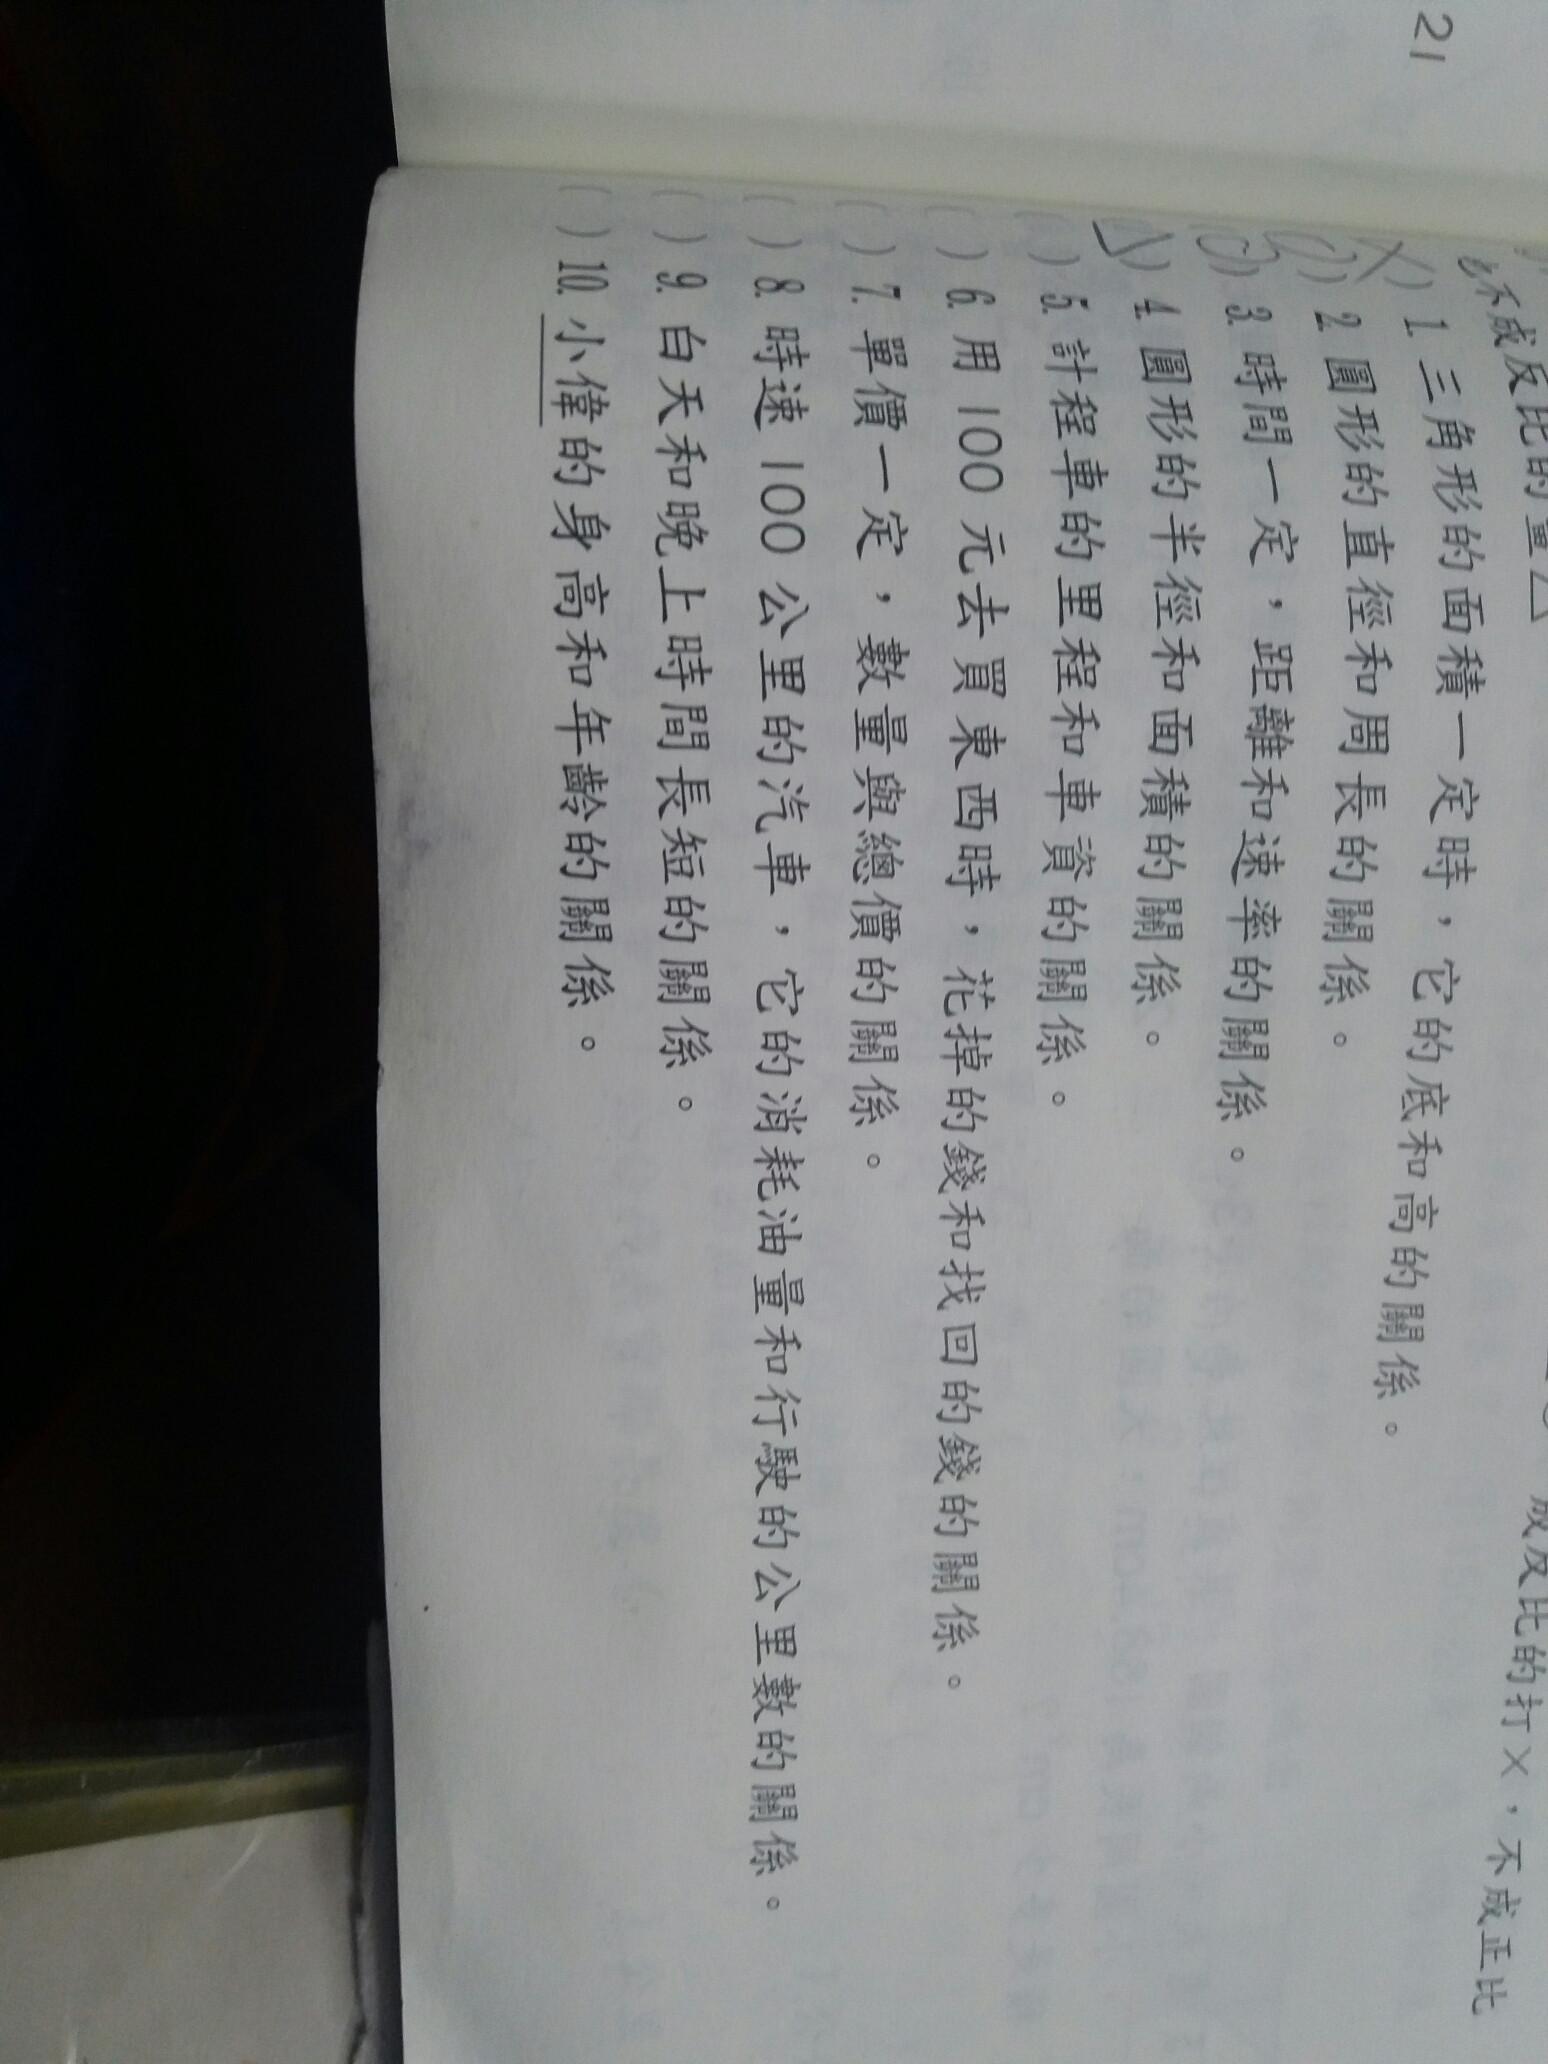 21
成反比的打×，不成正比
不成反比的畫△
(×) 1. 三角形的面積一定時，它的底和高的關係。
( ) 2. 圓形的直徑和周長的關係。
( ) 3. 時間一定，距離和速率的關係。
(△) 4. 圓形的半徑和面積的關係。
( ) 5. 計程車的里程和車資的關係。
( ) 6. 用 100 元去買東西時，花掉的錢和找回的錢的關係。
( ) 7. 單價一定，數量與總價的關係。
( ) 8. 時速 100 公里的汽車，它的消耗油量和行駛的公里數的關係。
( ) 9. 白天和晚上時間長短的關係。
( ) 10. 小偉的身高和年齡的關係。